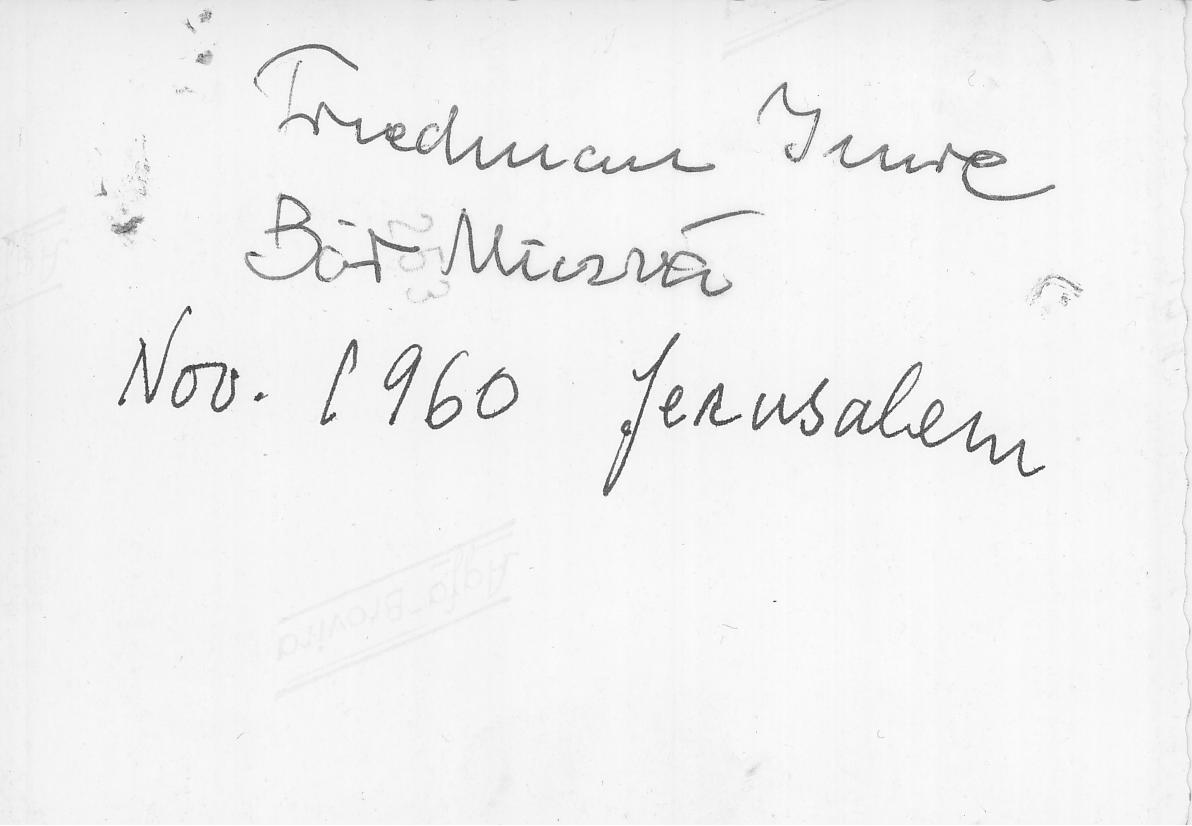 Friedman Imre
Bár Miczvá
Nov. 1960 Jerusalem
Agfa-Brovira